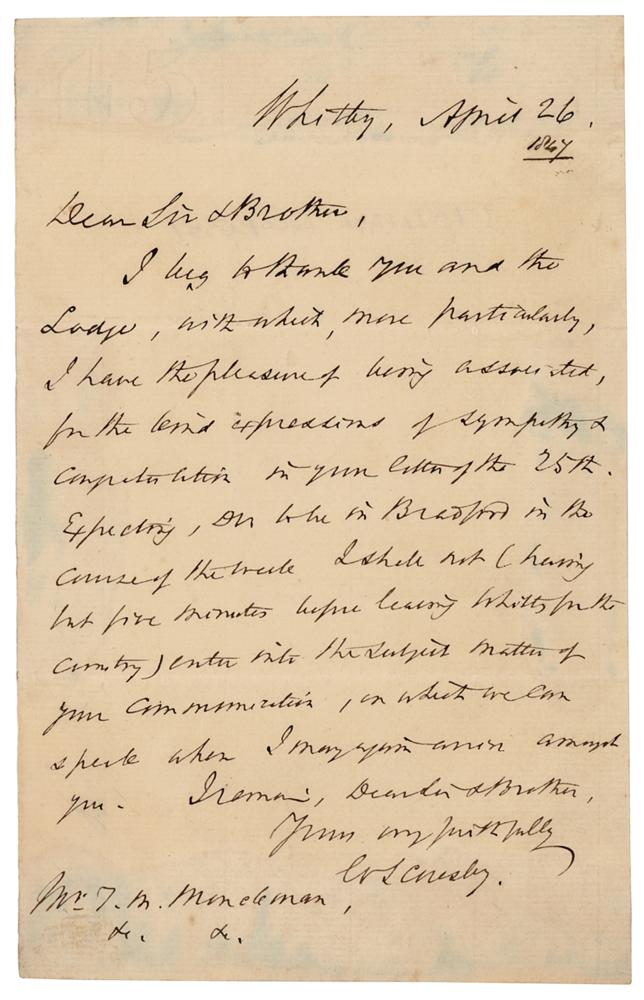 Whitby, April 26.
1847
Dear Sir & Brother,
I beg to thank you and the
Lodge, with which, more particularly,
I have the pleasure of being associated,
for the kind expressions of sympathy &
congratulation in your letter of the 25th.
Expecting, to be in Bradford in the
course of the week I shall not (having
but five minutes before leaving Whitby for the
country) enter into the subject matter of
your communication, on which we can
speak when I may again arrive amongst
you. I remain, Dear Sir & Brother,
Yours very faithfully
Wm Scoresby.
Mr. T. M. Monckman,
&c. &c.